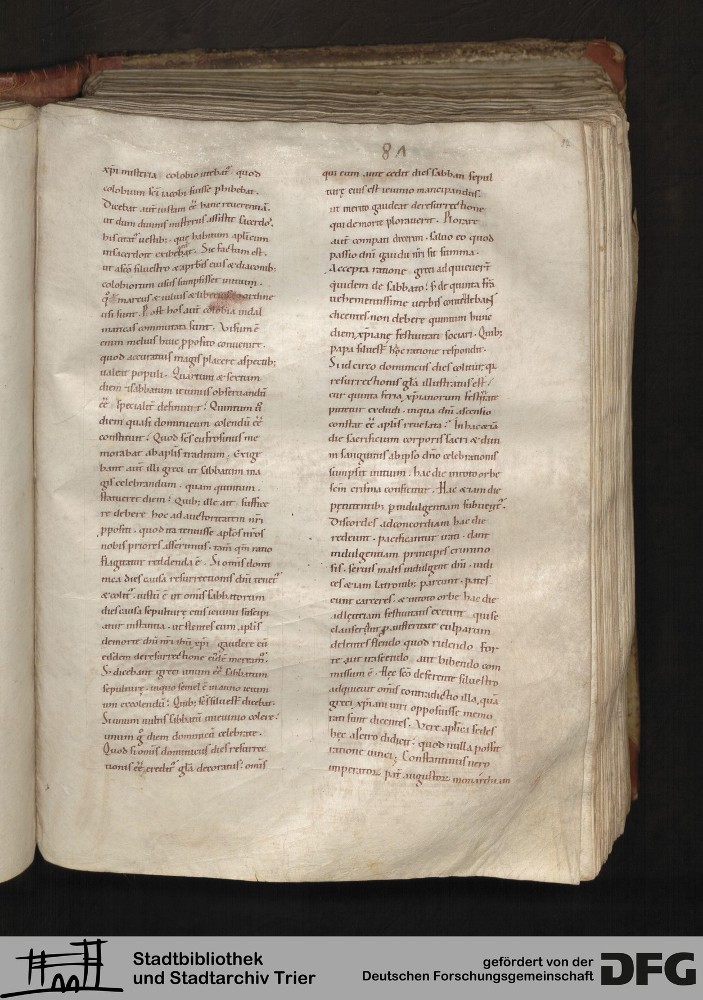 81
xpi misteria colobio utebat. quod
colobium sci iacobi fuisse phibebat.
Dicebat aut iustum eẽ hanc reuerentiã.
ut dum diuinis misteriis assistit sacerdos.
his utat uestib; quę habitum aplicum
insacerdote exibebat. Sic factum est.
ut a sco siluestro & a prbis eius & diaconib;
colobiorum usus sumpsisset initium.
marcus & iulius & liberius ordine
usi sunt. P ost hos aut colobia in dal
maticas commutata sunt. Visum ẽ
enim melius huic pposito conuenire.
quod accuratius magis placere aspectib;
ualeret populi. Quartum & sextum
diem & sabbatum ieiuniis obseruandũ
eẽ. specialit definiuit. Quintum ũ
diem quasi dominicum colendũ eẽ
constituit. Quod scs eufrosinus me
morabat ab aplis traditum. Exige
bant aut illi greci ut sabbatum ma
gis celebrandum. quam quintum.
statueret diem. Quib; ille ait. suffice
re debere hoc ad auctoritatem nri
ppositi. quod ita tenuisse aplos nros
nobis priores asserunt. tam qm ratio
flagitatur reddenda ẽ. Si omis domi
nica dies causa resurrectionis dni tenet
& colit. iustũ ẽ ut omis sabbatorum
dies causa sepulturę eius ieiunii suscipi
atur instantia. ut flentes cum aplis
de morte dni nri ihu xpi. gaudere cũ
eisdem de resurrectione eiusdẽ mereamur.
S; dicebant greci unum eẽ sabbatum
sepulturę. in quo semel ẽ in anno ieiuni
um excolendũ. Quib; scs siluest dicebat.
Si unum nultis sabbatũ in ieiunio colere.
unum g diem dominicũ celebrate.
Quod si omis dominicus dies resurrec
tionis eẽ credit gla decoratus. omis
qui eum aut cedit dies sabbati sepul
turę eius est ieiunio mancipandus.
ut merito gaudeat de resurrectione
qui de morte plorauerit. Plorare
aut compati dicerim. saluo eo quod
passio dni gaudii nri sit summa.
Accepta ratione. greci adquieuert
quidem de sabbato. s; de quinta fria
uehementissime uerbis contestebant
dicentes non debere quintum hunc
diem xpianę festiuitati sociari. Quib;
papa siluest hac ratione respondit.
Si idcirco dominicus dies colitur. quia
resurrectionis gla illustratus est.
cur quinta feria xpianorum festiuitate
putetur excludi. in qua dni ascensio
constat eẽ aplis reuelata? In hac etiã
die sacrificium corporis sacri & diui
ni sanguinis ab ipso dno celebrationis
sumpsit initium. hac die in toto orbe
scm crisma conficitur. Hac etiam die
penitentib; p indulgentiam subuenit.
Discordes ad concordiam hac die
redeunt. pacificantur irati. dant
indulgentiam principes crimino
sis. seruis malis indulgent dni. iudi
ces etiam latronib; parcunt. pates
cunt carceres. & in toto orbe hac die
ad lętitiam festiuitatis exeunt qui se
clauserant p austeritate culparum
delentes flendo quod ridendo. For
te aut irascendo. aut bibendo com
missum ẽ. Hęc sco deferente siluestro
adquieuit omis contradictio illa, quã
greci xpiani uiri opposuisse memo
rati sunt dicentes. Vere aplica sedes
hęc a petro didicit. quod nulla possit
ratione uinci. Constantinus uero
imperator. pat augustor. monarchiam
Stadtbibliothek
und Stadtarchiv Trier
gefördert von der
Deutschen Forschungsgemeinschaft
DFG